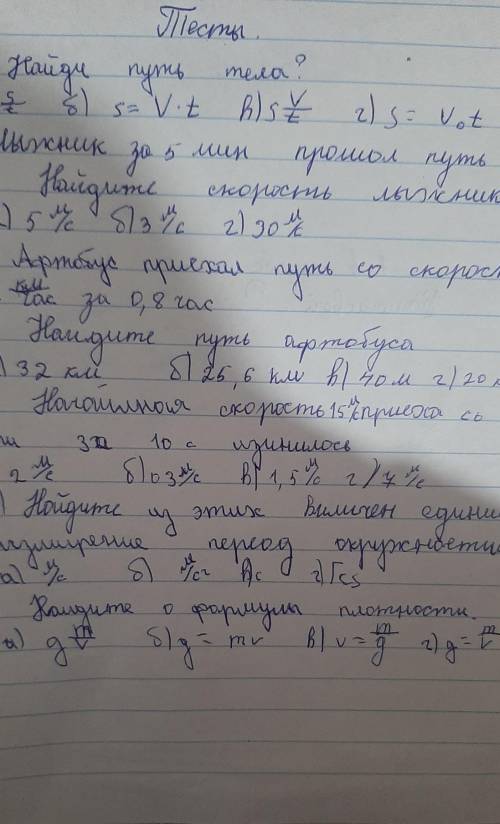 Тесты.
Найди путь тела?
s/t б) s = V·t в) s V/t г) s = V₀t
Лыжник за 5 мин прошол путь
Найдите скорость лыжник
) 5 м/с б) 3 м/с г) 30 м/с
Артобус приехал путь со скорос
км/час за 0,8 час
Наидите путь афтобуса
) 32 км б) 25,6 км в) 40 м г) 20 к
скорость 15 м/с со
10 с
2 м/с б) 0 3 м/с в) 1,5 м/с г) 7 м/с
) Нойдите из этих Виличен едини
измирение период окружности
а) м/с б) м/с² в) с г)
Наидите о формулы плотности.
а) g m/v б) g = mv в) v = m/g г) g = m/v